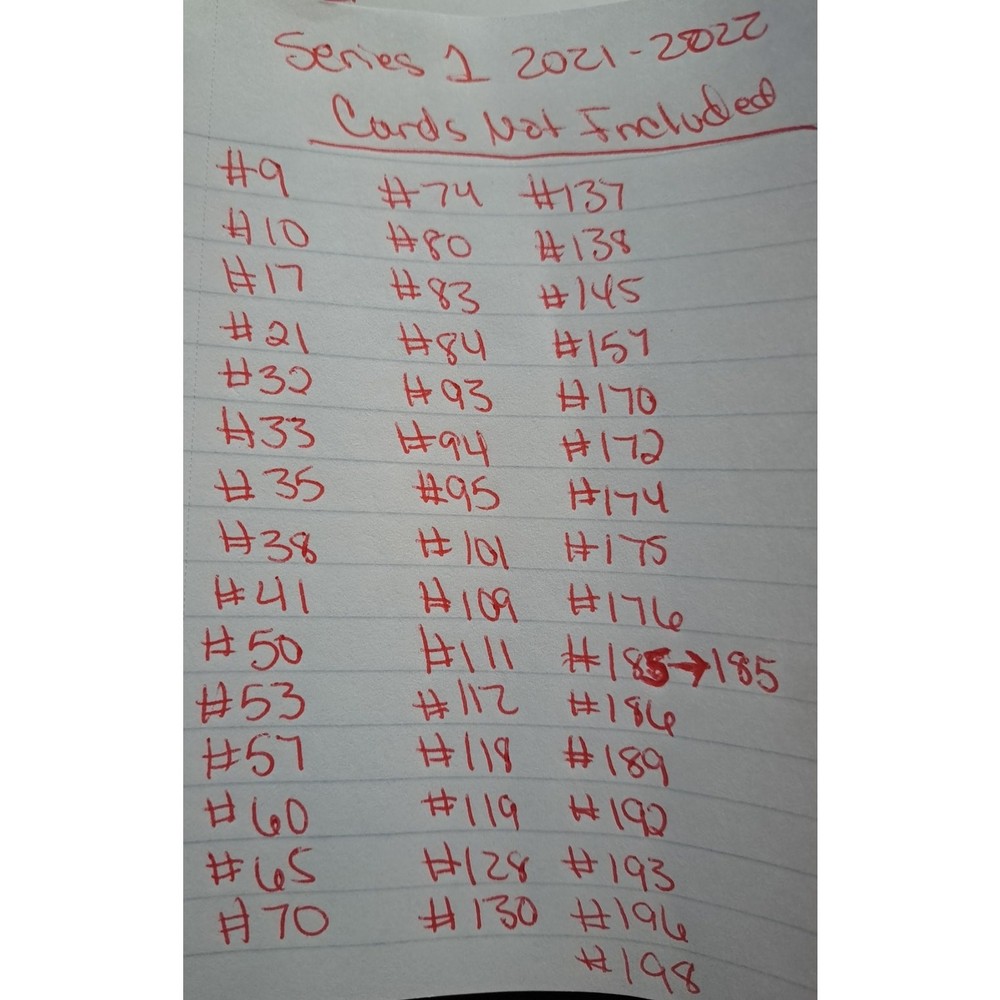 Series 1 2021-2022
Cards Not Included
#9 #74 #137
#10 #80 #138
#17 #83 #145
#21 #84 #157
#32 #93 #170
#33 #94 #172
#35 #95 #174
#38 #101 #175
#41 #109 #176
#50 #111 #185→185
#53 #112 #186
#57 #118 #189
#60 #119 #192
#65 #128 #193
#70 #130 #196
#198